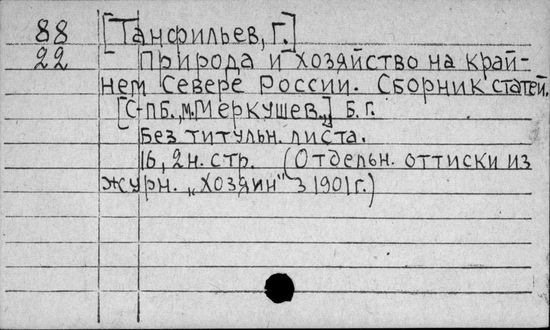 88 [Танфильев, Г.]
22 Природа и хозяйство на край-
нем Севере России. Сборник статей.
[С-пб., М. Меркушев.,] б. г.
Без титульн. листа.
16, 2 н. стр. (Отдельн. оттиски из
журн. „Хозяин" з 1901 г.)